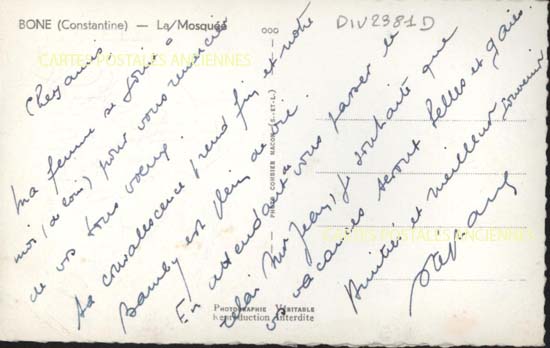 BONE (Constantine) — La Mosquée
DIV2381D
CARTES POSTALES ANCIENNES
Chers amis
ma femme se joint à
moi, (de loin) pour vous remercier
de vos bons voeux.
Sa convalescence prend fin et notre
est plein de vie.
En attendant de vous passer le
Mr Jean, je souhaite que
vos vacances seront belles et gaies.
Amitiés et meilleur souvenir
PHOTO COMBIER MACON (S.-ET-L.)
CARTES POSTALES ANCIENNES
PHOTOGRAPHIE VÉRITABLE
Reproduction Interdite